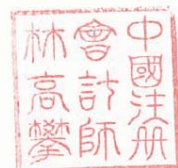 中國注册
會計師
林高攀